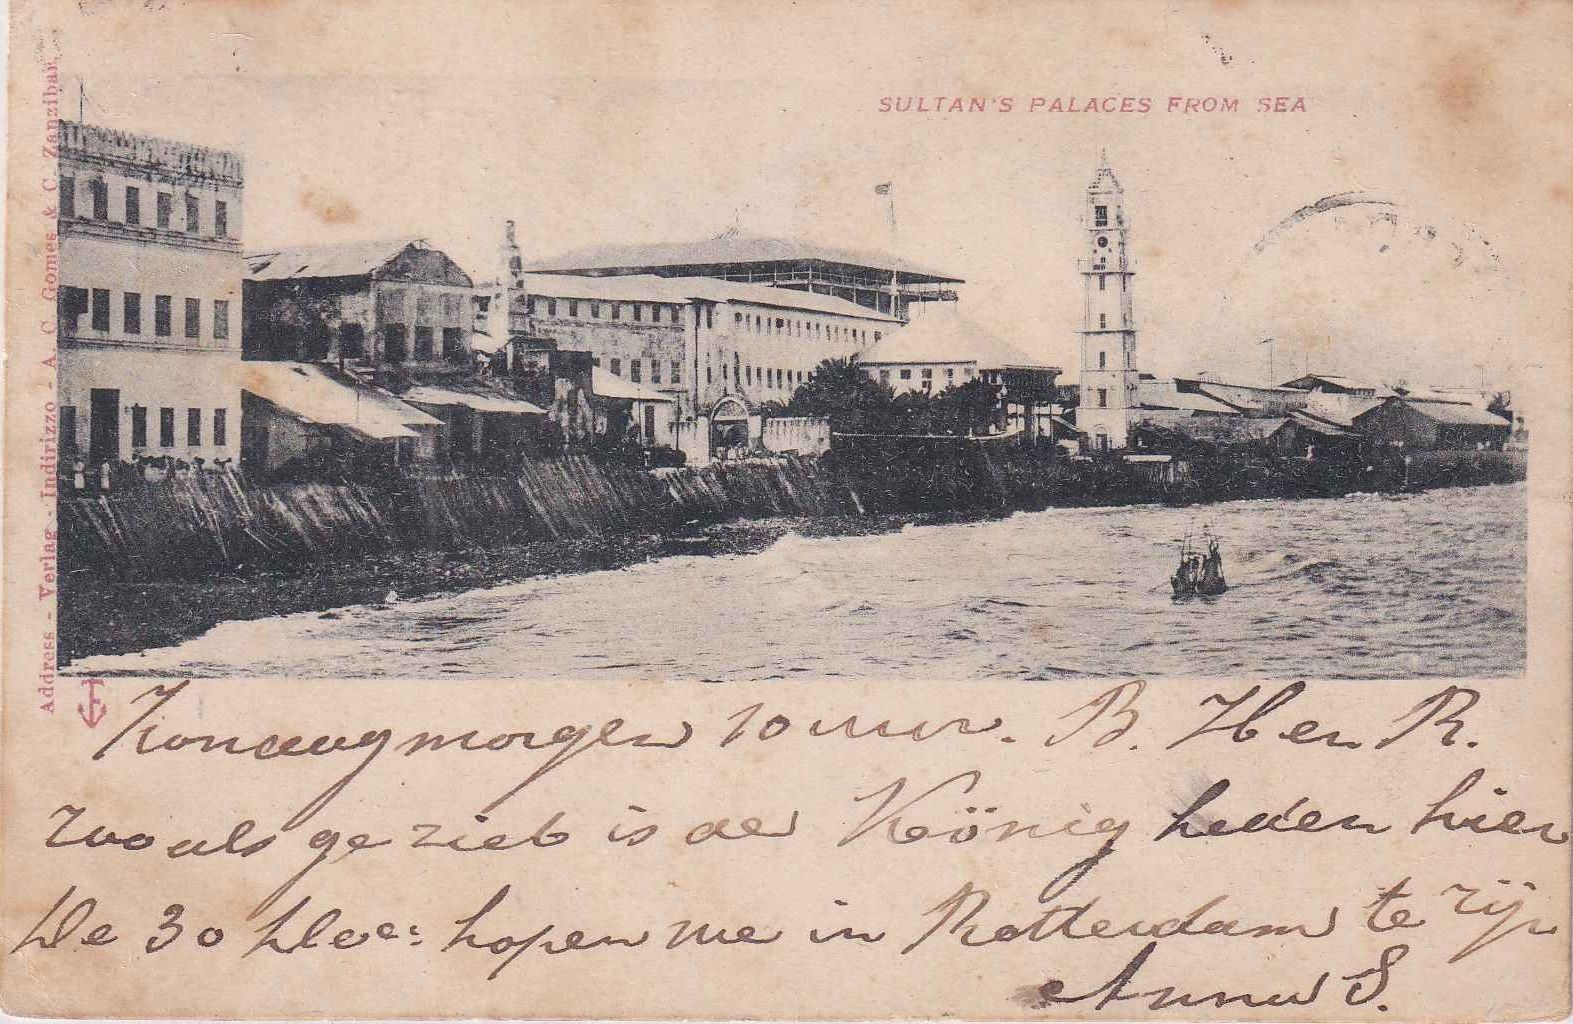 SULTAN'S PALACES FROM SEA
Address - Verlag - Indirizzo - A. C. Gomes & C. Zanzibar.
Zondagmorgen 10 uur. B. H en R.
Zooals ge ziet is de König heden hier
De 30 hopen we in Rotterdam te zijn
Anna S.